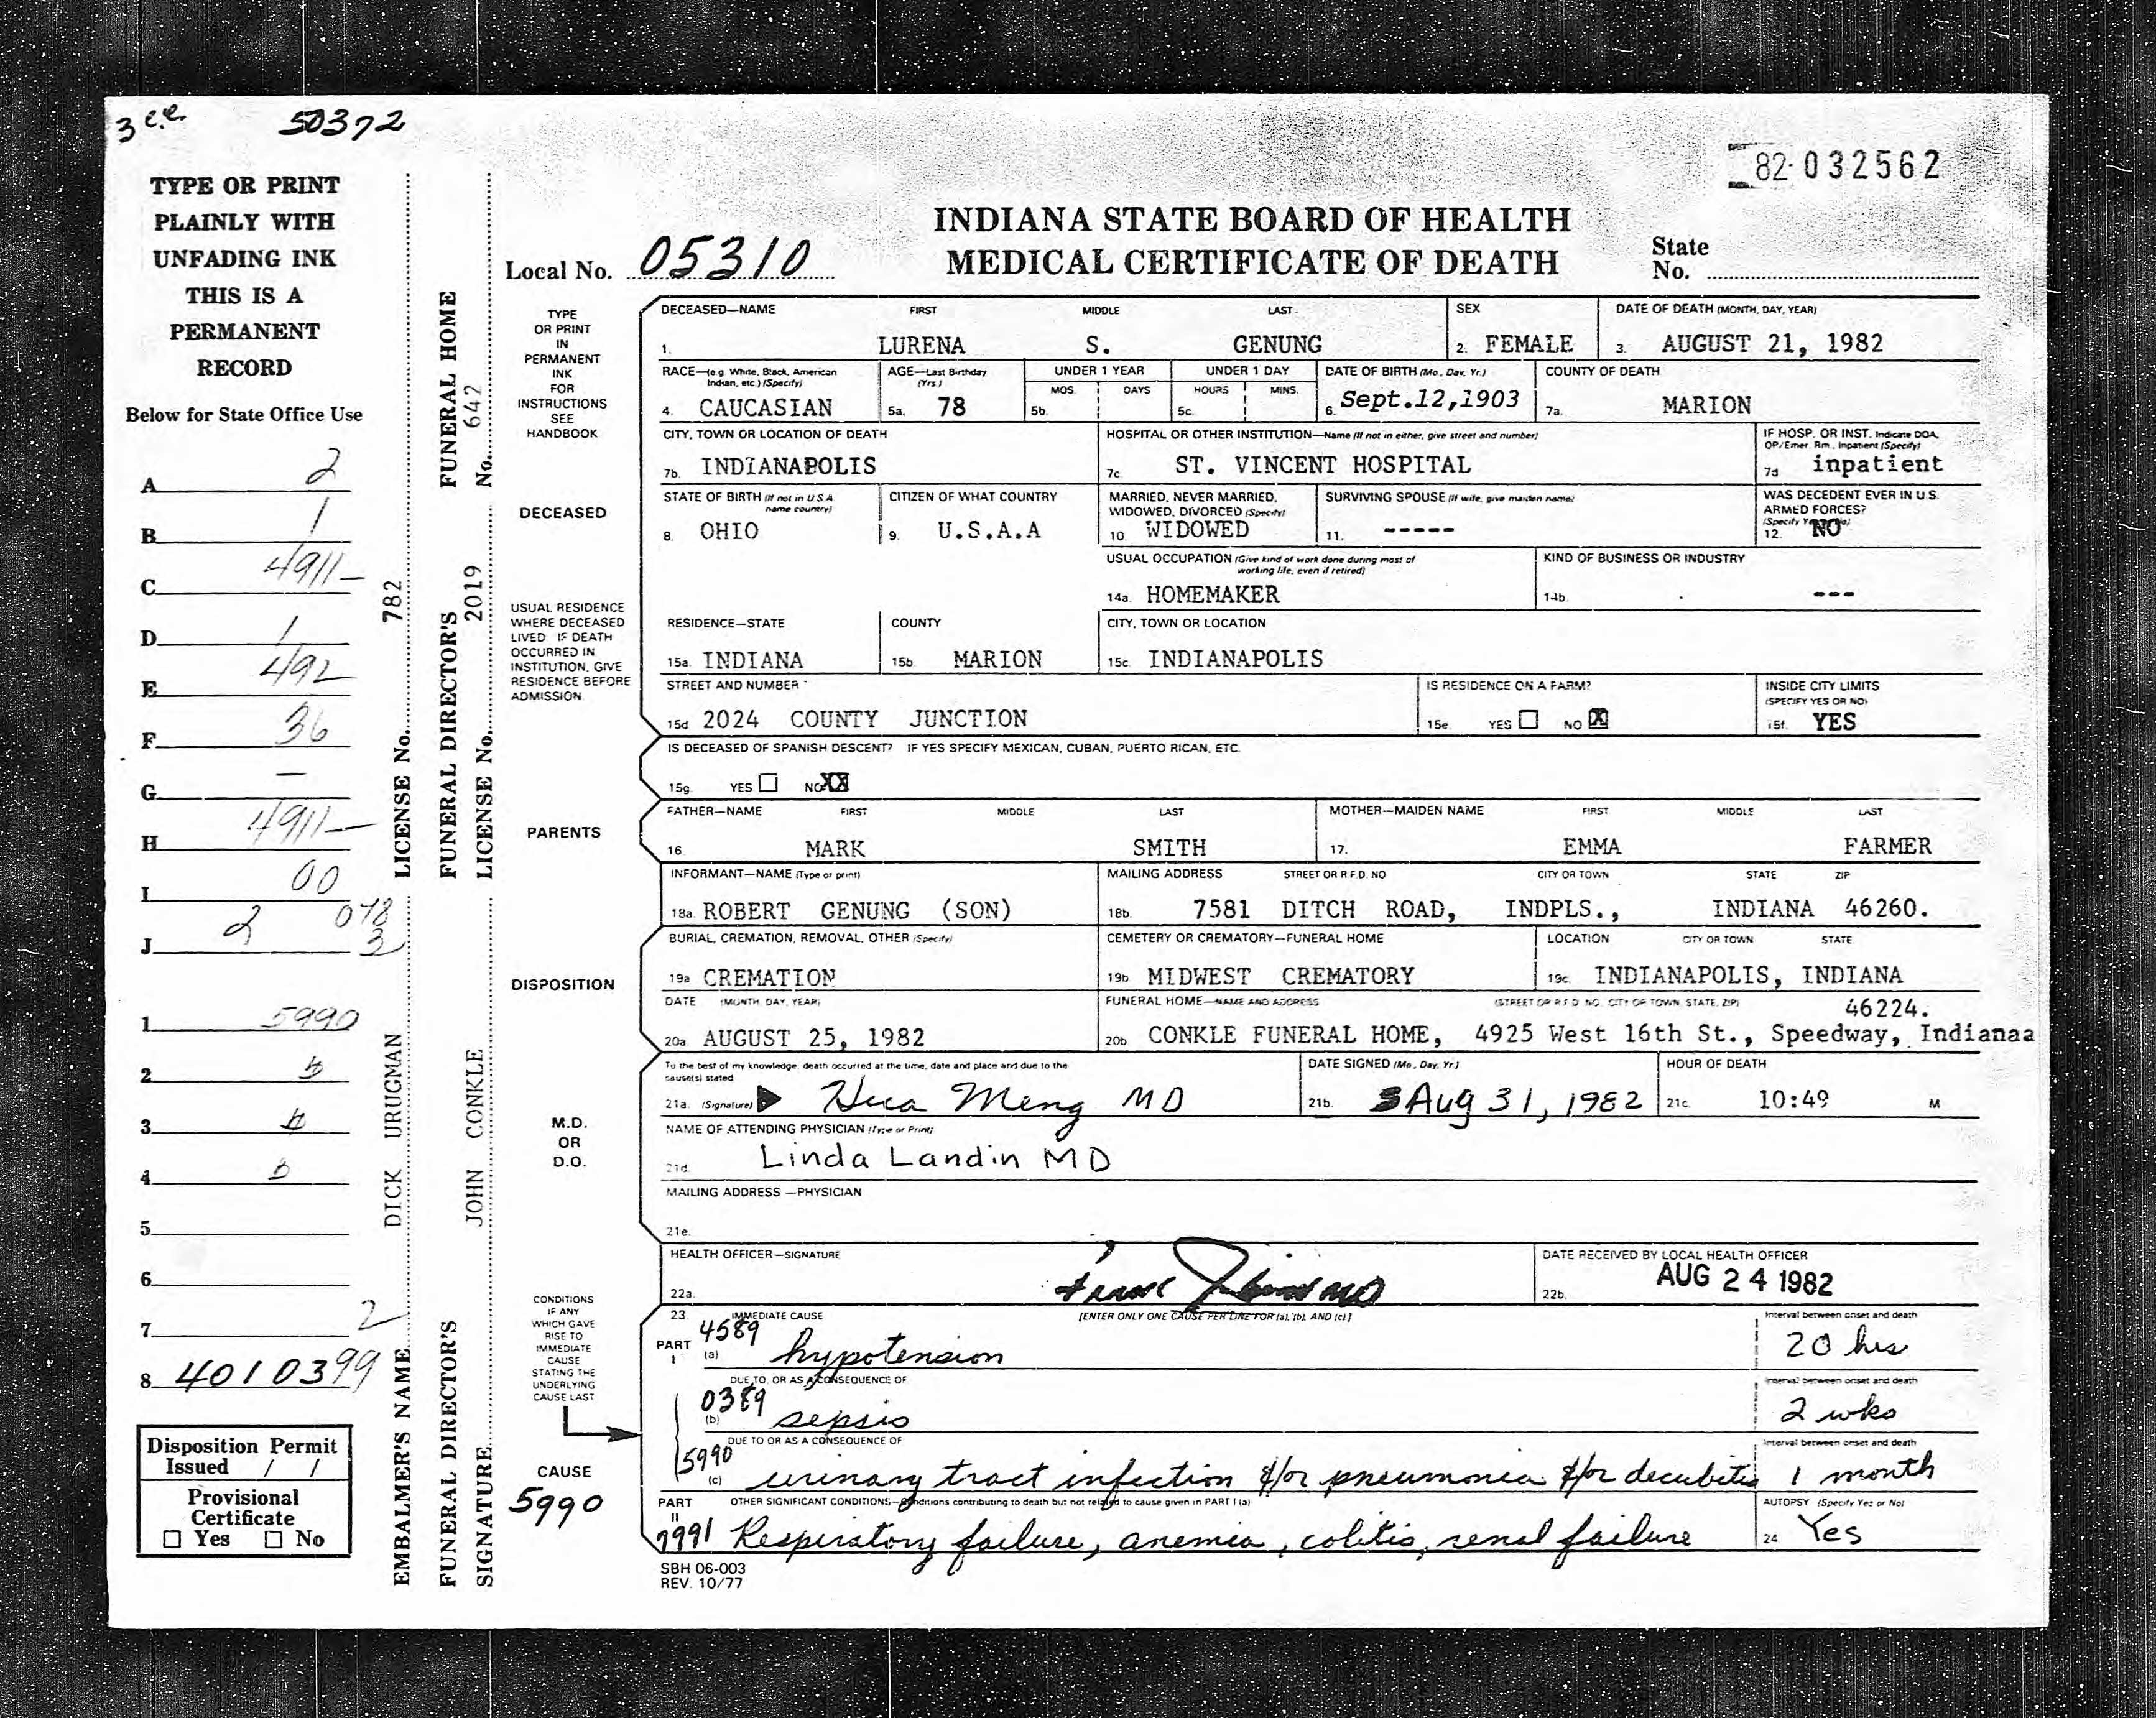 3 c.c. 50372
82-032562
TYPE OR PRINT
PLAINLY WITH
UNFADING INK
THIS IS A
PERMANENT
RECORD
Below for State Office Use
A 2
B 1
C 4911-
D 1
E 492
F 36
G -
H 4911-
I 00
J 2 078 3
1 5990
2
3
4
5
6
7 2
8 4010399
Disposition Permit
Issued / /
Provisional
Certificate
☐ Yes ☐ No
EMBALMER'S NAME DICK URUGMAN LICENSE No. 782
FUNERAL DIRECTOR'S SIGNATURE JOHN CONKLE FUNERAL DIRECTOR'S LICENSE No. 2019 FUNERAL HOME No. 642
INDIANA STATE BOARD OF HEALTH
MEDICAL CERTIFICATE OF DEATH
Local No. 05310
State
No.
TYPE
OR PRINT
IN
PERMANENT
INK
FOR
INSTRUCTIONS
SEE
HANDBOOK
DECEASED—NAME FIRST MIDDLE LAST SEX DATE OF DEATH (MONTH, DAY, YEAR)
1. LURENA S. GENUNG 2. FEMALE 3. AUGUST 21, 1982
RACE—(e.g. White, Black, American Indian, etc.) (Specify) AGE—Last Birthday (Yrs.) UNDER 1 YEAR UNDER 1 DAY DATE OF BIRTH (Mo., Day, Yr.) COUNTY OF DEATH
MOS. DAYS HOURS MINS.
4. CAUCASIAN 5a. 78 5b. 5c. 6. Sept.12,1903 7a. MARION
CITY, TOWN OR LOCATION OF DEATH HOSPITAL OR OTHER INSTITUTION—Name (If not in either, give street and number) IF HOSP. OR INST. Indicate DOA, OP/Emer. Rm., Inpatient (Specify)
7b. INDIANAPOLIS 7c. ST. VINCENT HOSPITAL 7d inpatient
DECEASED
STATE OF BIRTH (If not in U.S.A. name country) CITIZEN OF WHAT COUNTRY MARRIED, NEVER MARRIED, WIDOWED, DIVORCED (Specify) SURVIVING SPOUSE (If wife, give maiden name) WAS DECEDENT EVER IN U.S. ARMED FORCES? (Specify Yes or No)
8. OHIO 9. U.S.A.A 10. WIDOWED 11. ----- 12. NO
USUAL OCCUPATION (Give kind of work done during most of working life, even if retired) KIND OF BUSINESS OR INDUSTRY
14a. HOMEMAKER 14b. ---
USUAL RESIDENCE
WHERE DECEASED
LIVED IF DEATH
OCCURRED IN
INSTITUTION, GIVE
RESIDENCE BEFORE
ADMISSION.
RESIDENCE—STATE COUNTY CITY, TOWN OR LOCATION
15a. INDIANA 15b. MARION 15c. INDIANAPOLIS
STREET AND NUMBER IS RESIDENCE ON A FARM? INSIDE CITY LIMITS (SPECIFY YES OR NO)
15d 2024 COUNTY JUNCTION 15e. YES ☐ NO ☒ 15f. YES
IS DECEASED OF SPANISH DESCENT? IF YES SPECIFY MEXICAN, CUBAN, PUERTO RICAN, ETC.
15g. YES ☐ NO XX
PARENTS
FATHER—NAME FIRST MIDDLE LAST MOTHER—MAIDEN NAME FIRST MIDDLE LAST
16 MARK SMITH 17. EMMA FARMER
INFORMANT—NAME (Type or print) MAILING ADDRESS STREET OR R.F.D. NO CITY OR TOWN STATE ZIP
18a. ROBERT GENUNG (SON) 18b. 7581 DITCH ROAD, INDPLS., INDIANA 46260.
DISPOSITION
BURIAL, CREMATION, REMOVAL, OTHER (Specify) CEMETERY OR CREMATORY—FUNERAL HOME LOCATION CITY OR TOWN STATE
19a CREMATION 19b MIDWEST CREMATORY 19c. INDIANAPOLIS, INDIANA
DATE (MONTH, DAY, YEAR) FUNERAL HOME—NAME AND ADDRESS (STREET OR R.F.D. NO. CITY OR TOWN, STATE, ZIP)
46224.
20a AUGUST 25, 1982 20b CONKLE FUNERAL HOME, 4925 West 16th St., Speedway, Indianaa
M.D.
OR
D.O.
To the best of my knowledge, death occurred at the time, date and place and due to the cause(s) stated DATE SIGNED (Mo., Day, Yr.) HOUR OF DEATH
21a. (Signature) Hua Meng MD 21b. Aug 31, 1982 21c. 10:49 M
NAME OF ATTENDING PHYSICIAN (Type or Print)
21d. Linda Landin MD
MAILING ADDRESS—PHYSICIAN
21e.
HEALTH OFFICER—SIGNATURE DATE RECEIVED BY LOCAL HEALTH OFFICER
22a. MD 22b. AUG 24 1982
CONDITIONS
IF ANY
WHICH GAVE
RISE TO
IMMEDIATE
CAUSE
STATING THE
UNDERLYING
CAUSE LAST
CAUSE
5990
23. IMMEDIATE CAUSE [ENTER ONLY ONE CAUSE PER LINE FOR (a), (b), AND (c)] Interval between onset and death
PART I 4589 (a) hypotension 20 hrs
DUE TO, OR AS A CONSEQUENCE OF Interval between onset and death
0389 (b) sepsis 2 wks
DUE TO OR AS A CONSEQUENCE OF Interval between onset and death
5990 (c) urinary tract infection &/or pneumonia &/or decubitis 1 month
PART II OTHER SIGNIFICANT CONDITIONS—Conditions contributing to death but not related to cause given in PART I (a) AUTOPSY (Specify Yes or No)
7991 Respiratory failure, anemia, colitis, renal failure 24 Yes
SBH 06-003
REV. 10/77